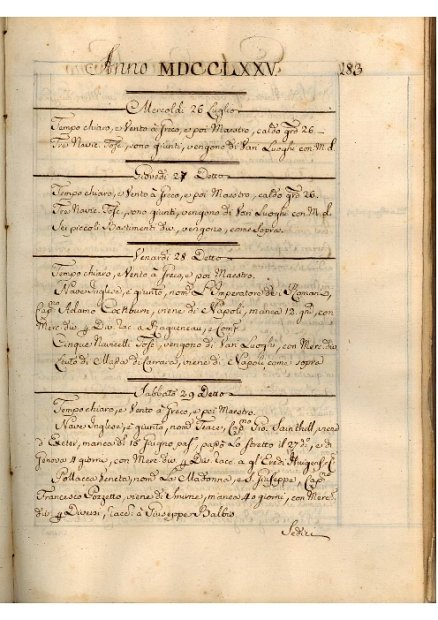 Anno MDCCLXXV. 183
Mercoldi 26 Luglio
Tempo chiaro, e Vento à Greco, e poi Maestro, caldo grã 26
Tre Navic. Tosc. sono giunti, vengono di Vari Luoghi con M. d.
Giovedi 27 Detto
Tempo chiaro, e Vento à Greco, e poi Maestro, caldo grã 26.
Tre Navic. Tosc. sono giunti, vengono di Vari Luoghi con M. d.
Sei piccoli Bastimenti div. vengono, come sopra.
Venardi 28 Detto
Tempo chiaro, e Vento à Greco, e poi Maestro.
Nave Inglese, è giunto, nom. L'Imperatore de' Romani,
Cap.no Adamo Cockburn, viene di Napoli, manca 12 gni, con
Merc. div. p Div. Rac. a Ragueneau, e Comp.
Cinque Navicelli Tosc. vengono di Vari Luoghi, con Merc. div.
Leuto di Massa di Carrara, viene di Napoli, come sopra
Sabbato 29 Detto
Tempo chiaro, e Vento à Greco, e poi Maestro.
Nave Inglese, è giunto, nom. Peace, Cap.no Gio. Sainthill,
d'Exeter, manca di 15 Giugno pas. lo stretto il 27 d., e di
Genova 4 giorni, con Merc. div. p Div. Racc. a gl'Eredi Huigens
Pollacca Veneta, nom. La Madonna, e S. Giuseppe, Cap.
Francesco Pozzetto, viene di Smirne, manca 40 giorni, con Merc.
div. p Diversi, Racc. à Giuseppe Balbis.
Sedici